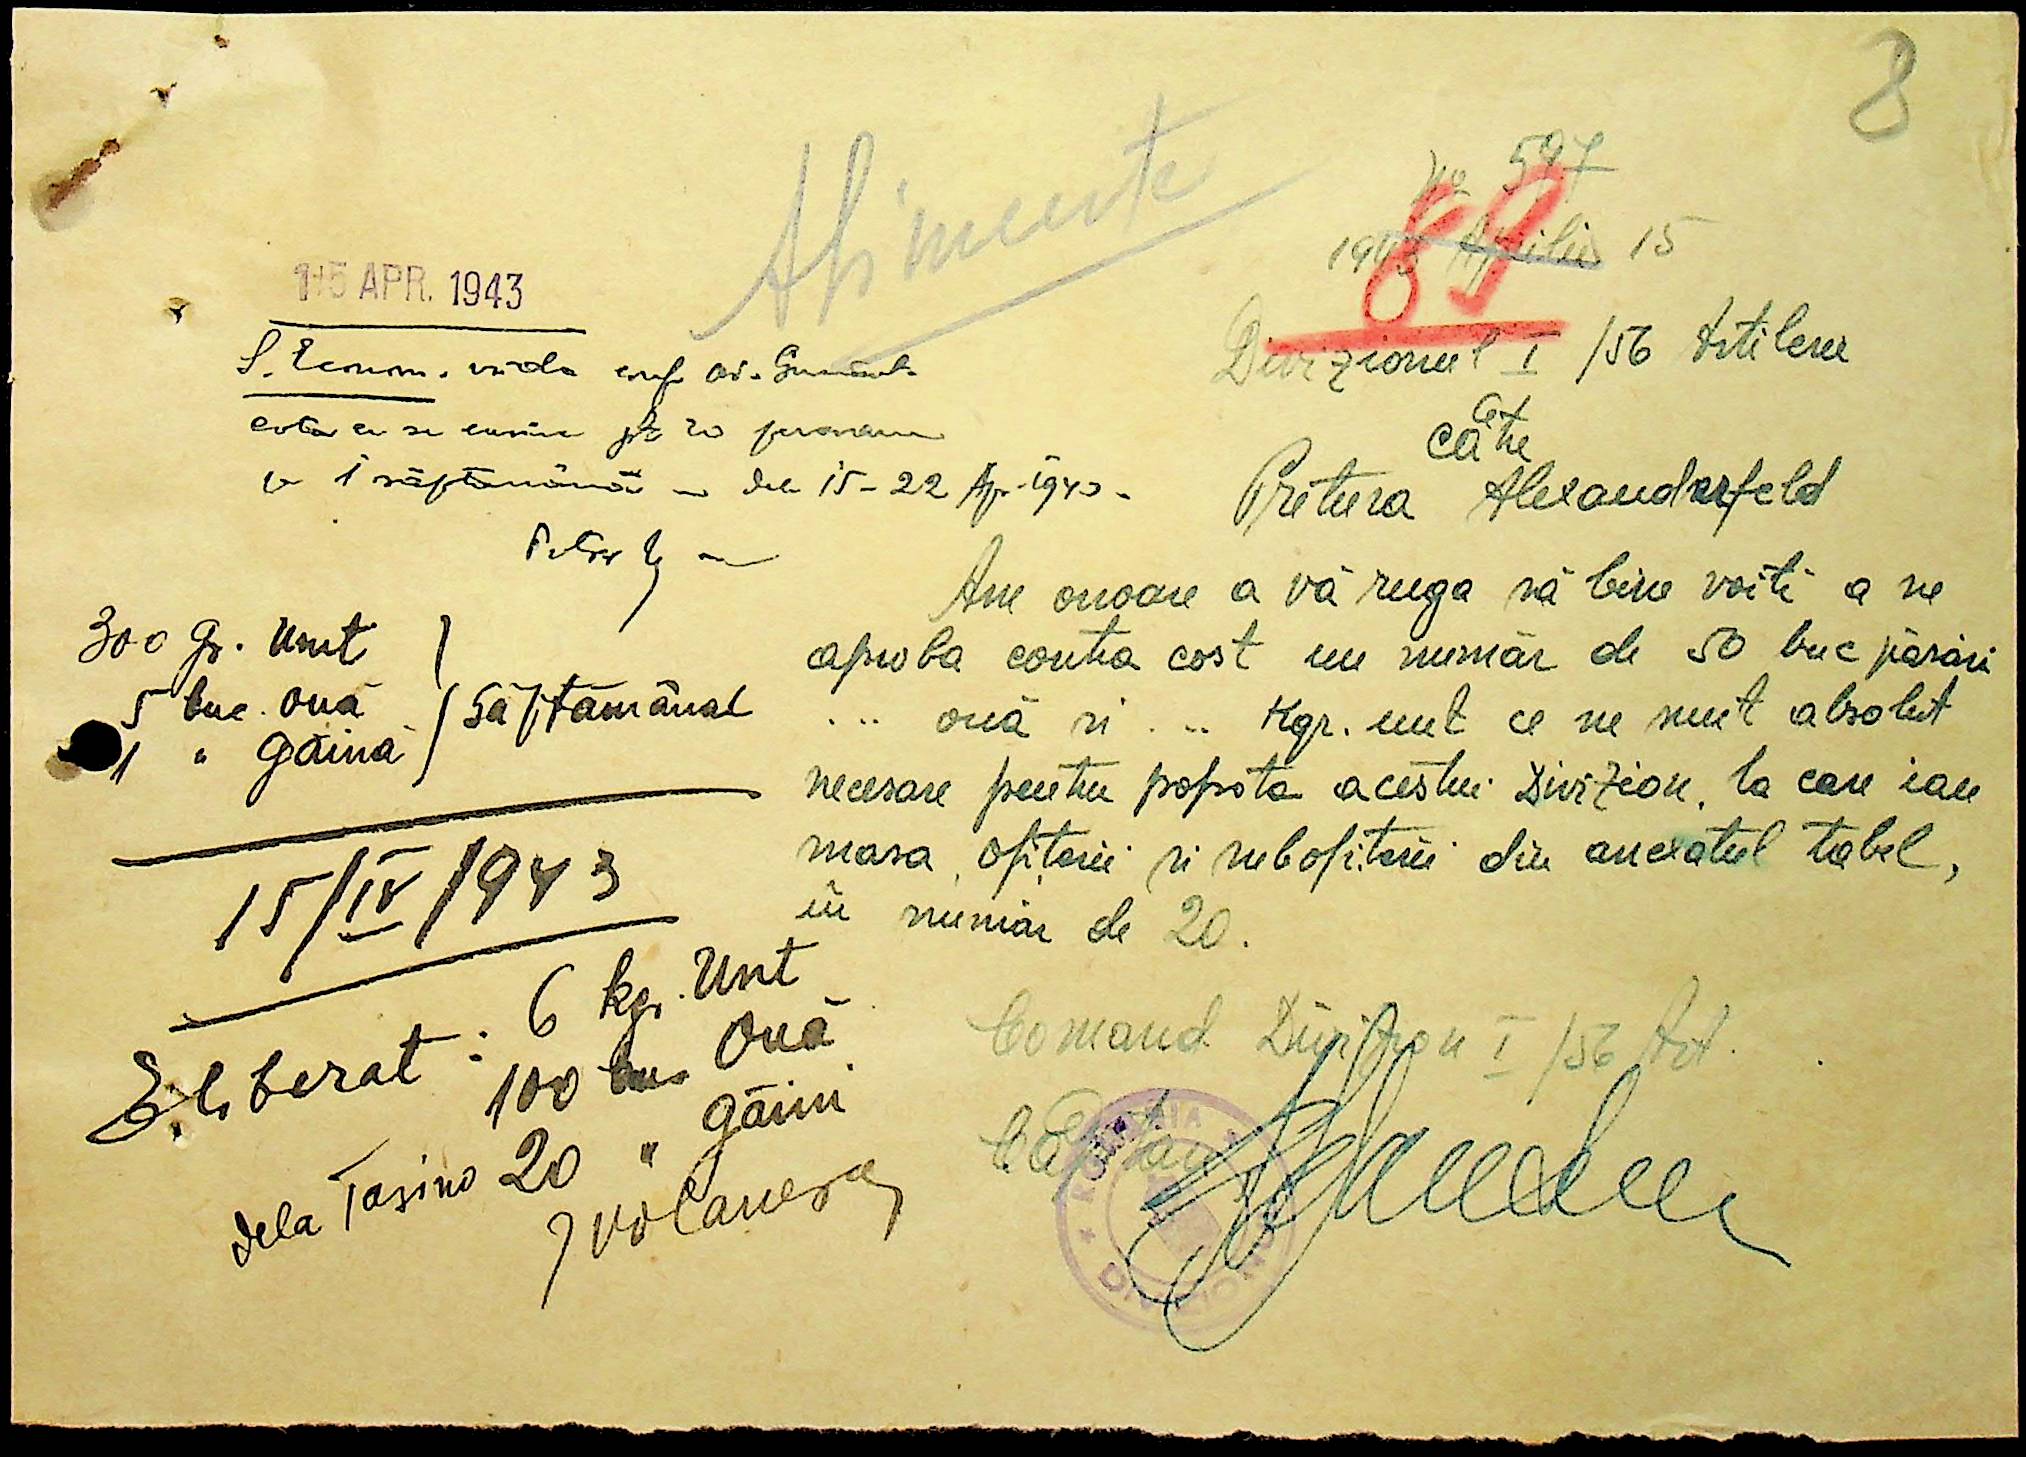 8
Alimente
No 597
89
1943 Aprilie 15
15 APR. 1943
Divizionul I /56 Artilerie
către
Pretura Alexanderfeld
S. Econom. vă da conf. or.
cota ce se cuvine pt 20 persoane
pe 1 săptămână dela 15-22 Apr. 1943.
Am onoare a vă ruga să bine voiti a ne
aproba contra cost un număr de 50 buc păsări
... ouă si ... Kgr. unt ce ne sunt absolut
necesare pentru popota acestui Divizion, la care iau
masa, ofițerii si subofițerii din anexatul tabel,
în număr de 20.
300 gr. Unt
5 buc. Ouă
1 " Găină
Săptămânal
15/IV/1943
Eliberat: 6 kgr. Unt
100 buc Ouă
dela Tasino 20 " găini
Comand Divizion I /56 Art.
Căpitan
ROMANIA * DIVIZIONUL